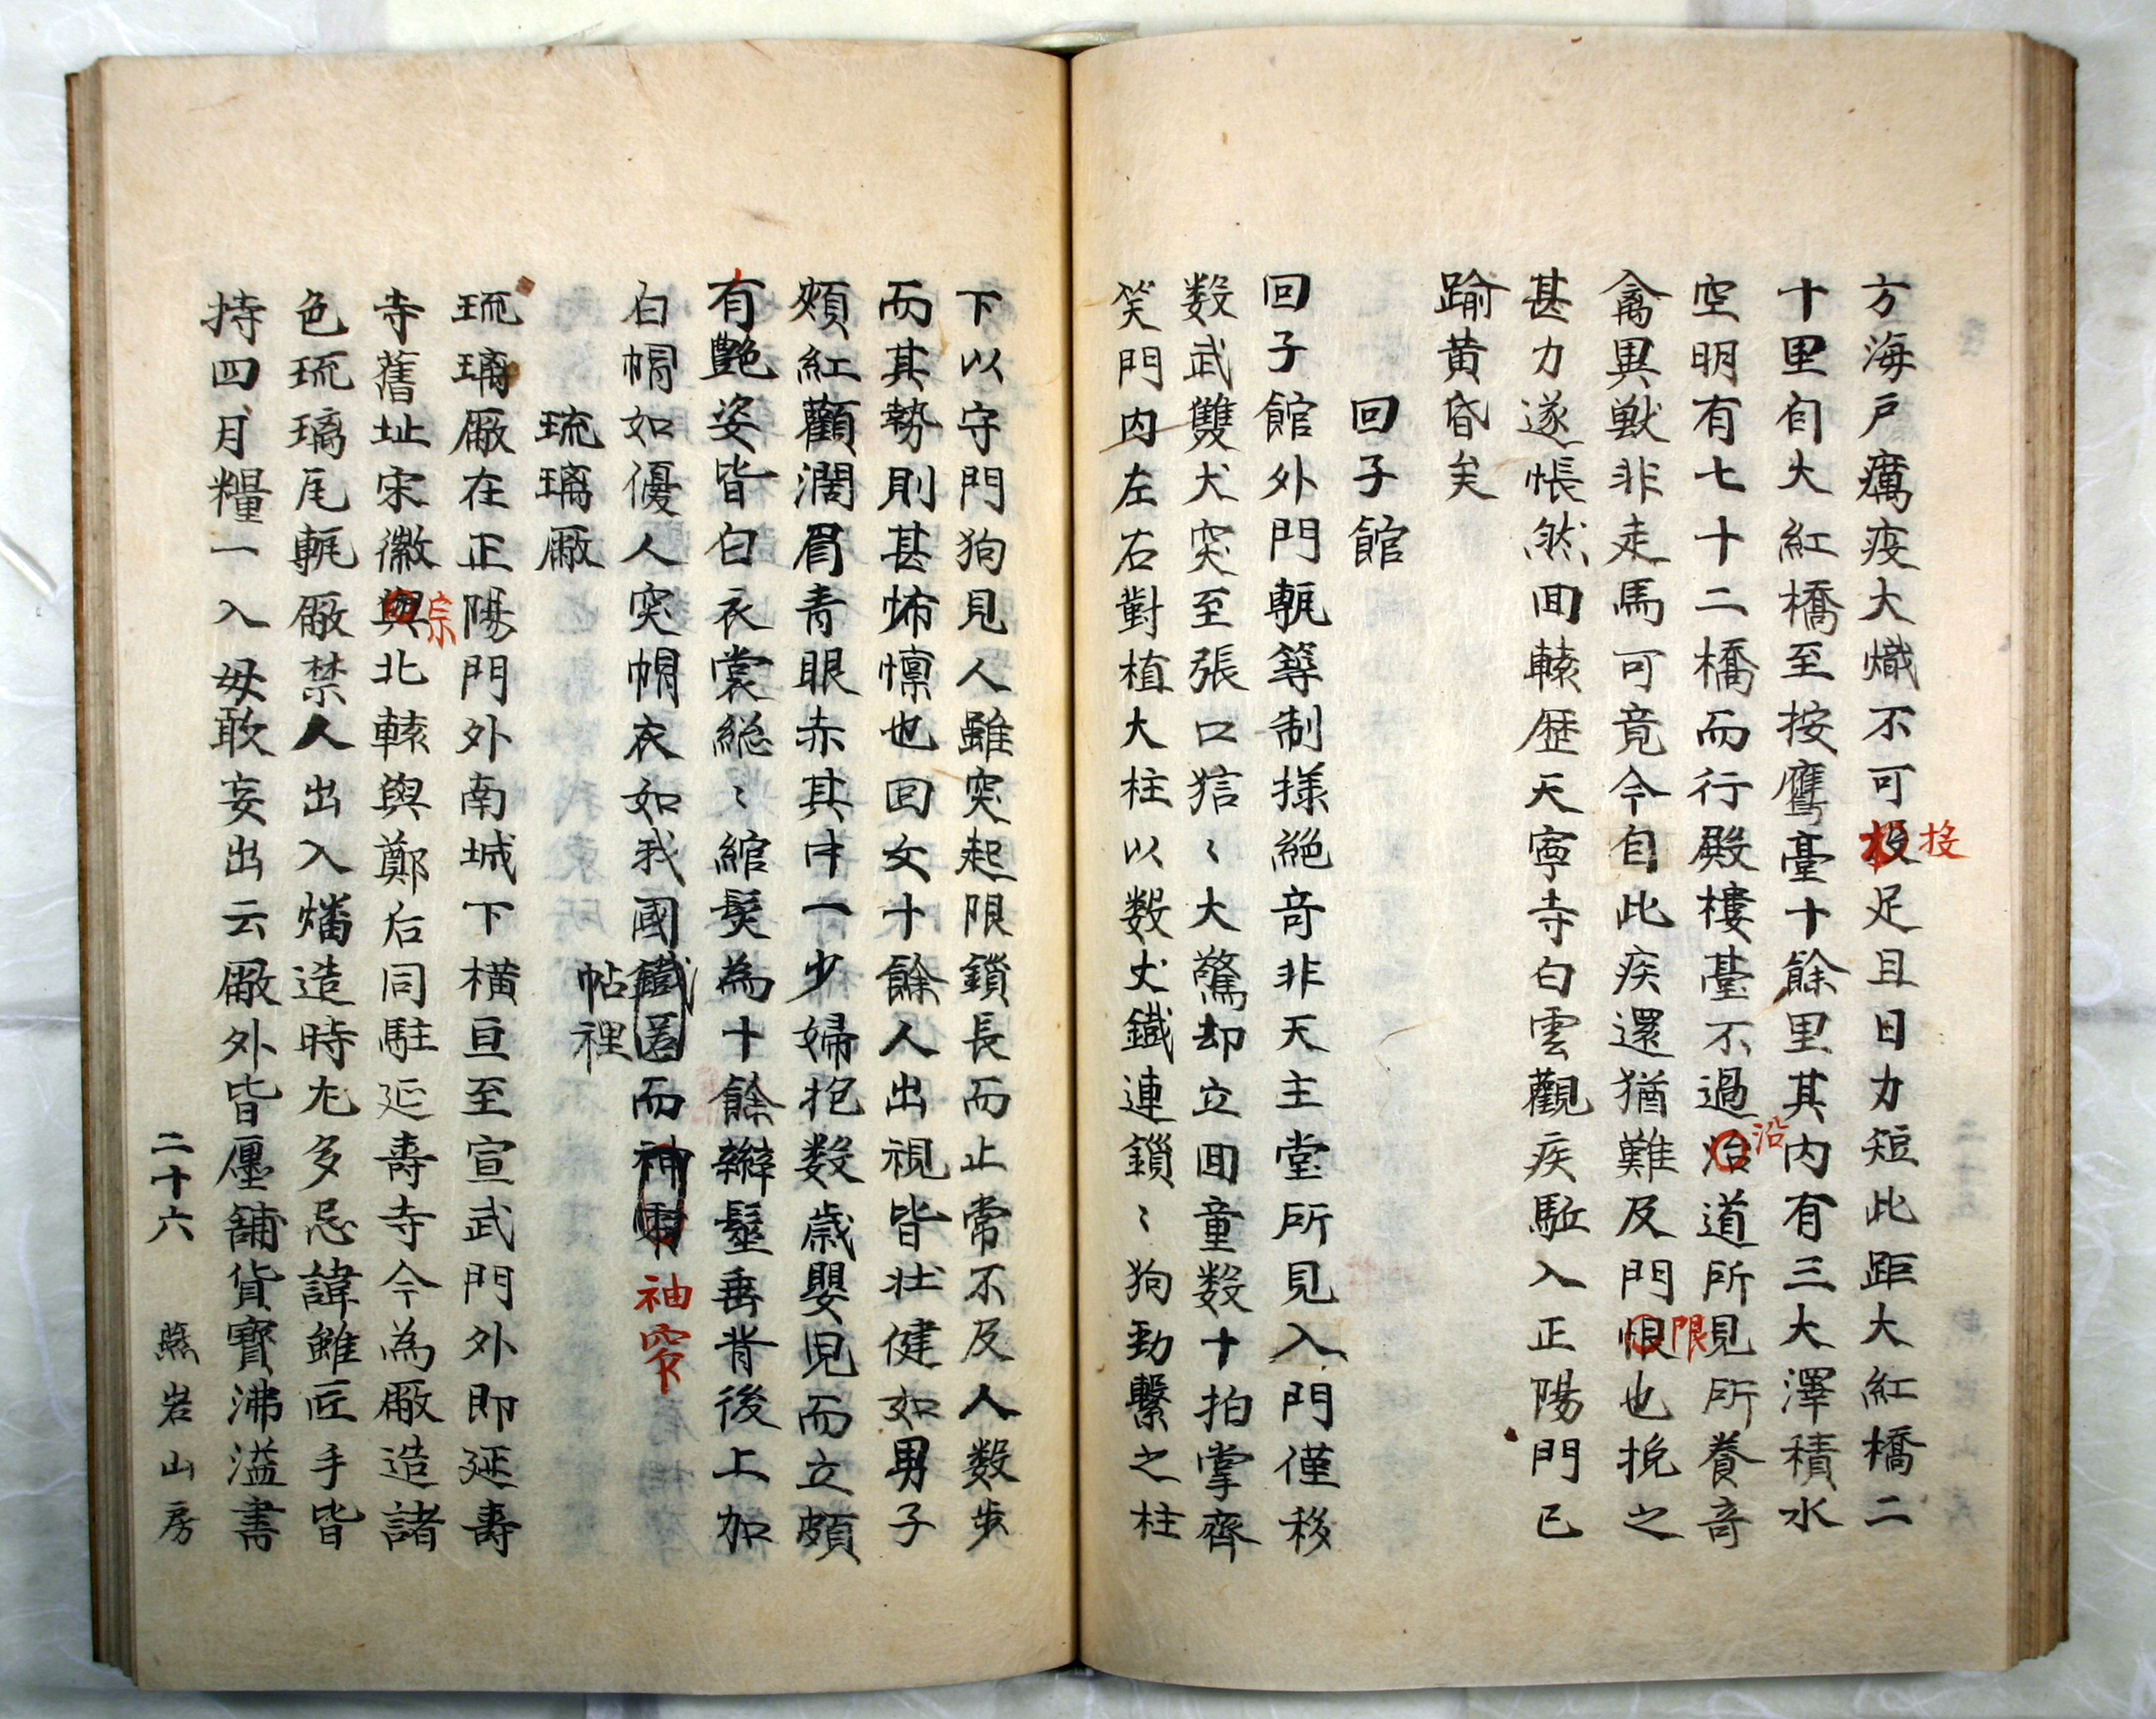 方海戶癘疫大熾不可投足且日力短此距大紅橋二
投
十里自大紅橋至按鷹臺十餘里其內有三大澤積水
空明有七十二橋而行殿樓臺不過治道所見所養奇
沿
禽異獸非走馬可竟今自此疾還猶難及門恨也挽之
限
甚力遂悵然回轅歷天寧寺白雲觀疾驅入正陽門已
踰黃昏矣
回子館
回子館外門甎等制㨾絕奇非天主堂所見入門僅移
数武雙犬突至張口狺〻大驚却立回童数十拍掌齊
笑門內左右對植大柱以数丈鐵連鎖〻狗勁繫之柱
下以守門狗見人雖突起限鎖長而止常不及人数步
而其勢則甚怖懍也回女十餘人出視皆壯健如男子
頰紅顴濶眉青眼赤其中一少婦抱数歲嬰兒而立頗
有艶姿皆白衣裳緫〻綰髮為十餘辮鬘垂背後上加
白㡌如優人突㡌衣如我國鐵而神
帖裡
袖窄
琉璃廠
琉璃廠在正陽門外南城下橫亘至宣武門外即延壽
寺舊址宋徽與北轅與鄭后同駐延壽寺今為廠造諸
宗
色琉璃瓦甎廠禁人出入燔造時尤多忌諱雖匠手皆
持四月糧一入毋敢妄出云廠外皆廛舖貨寶沸溢書
二十六
燕岩山房